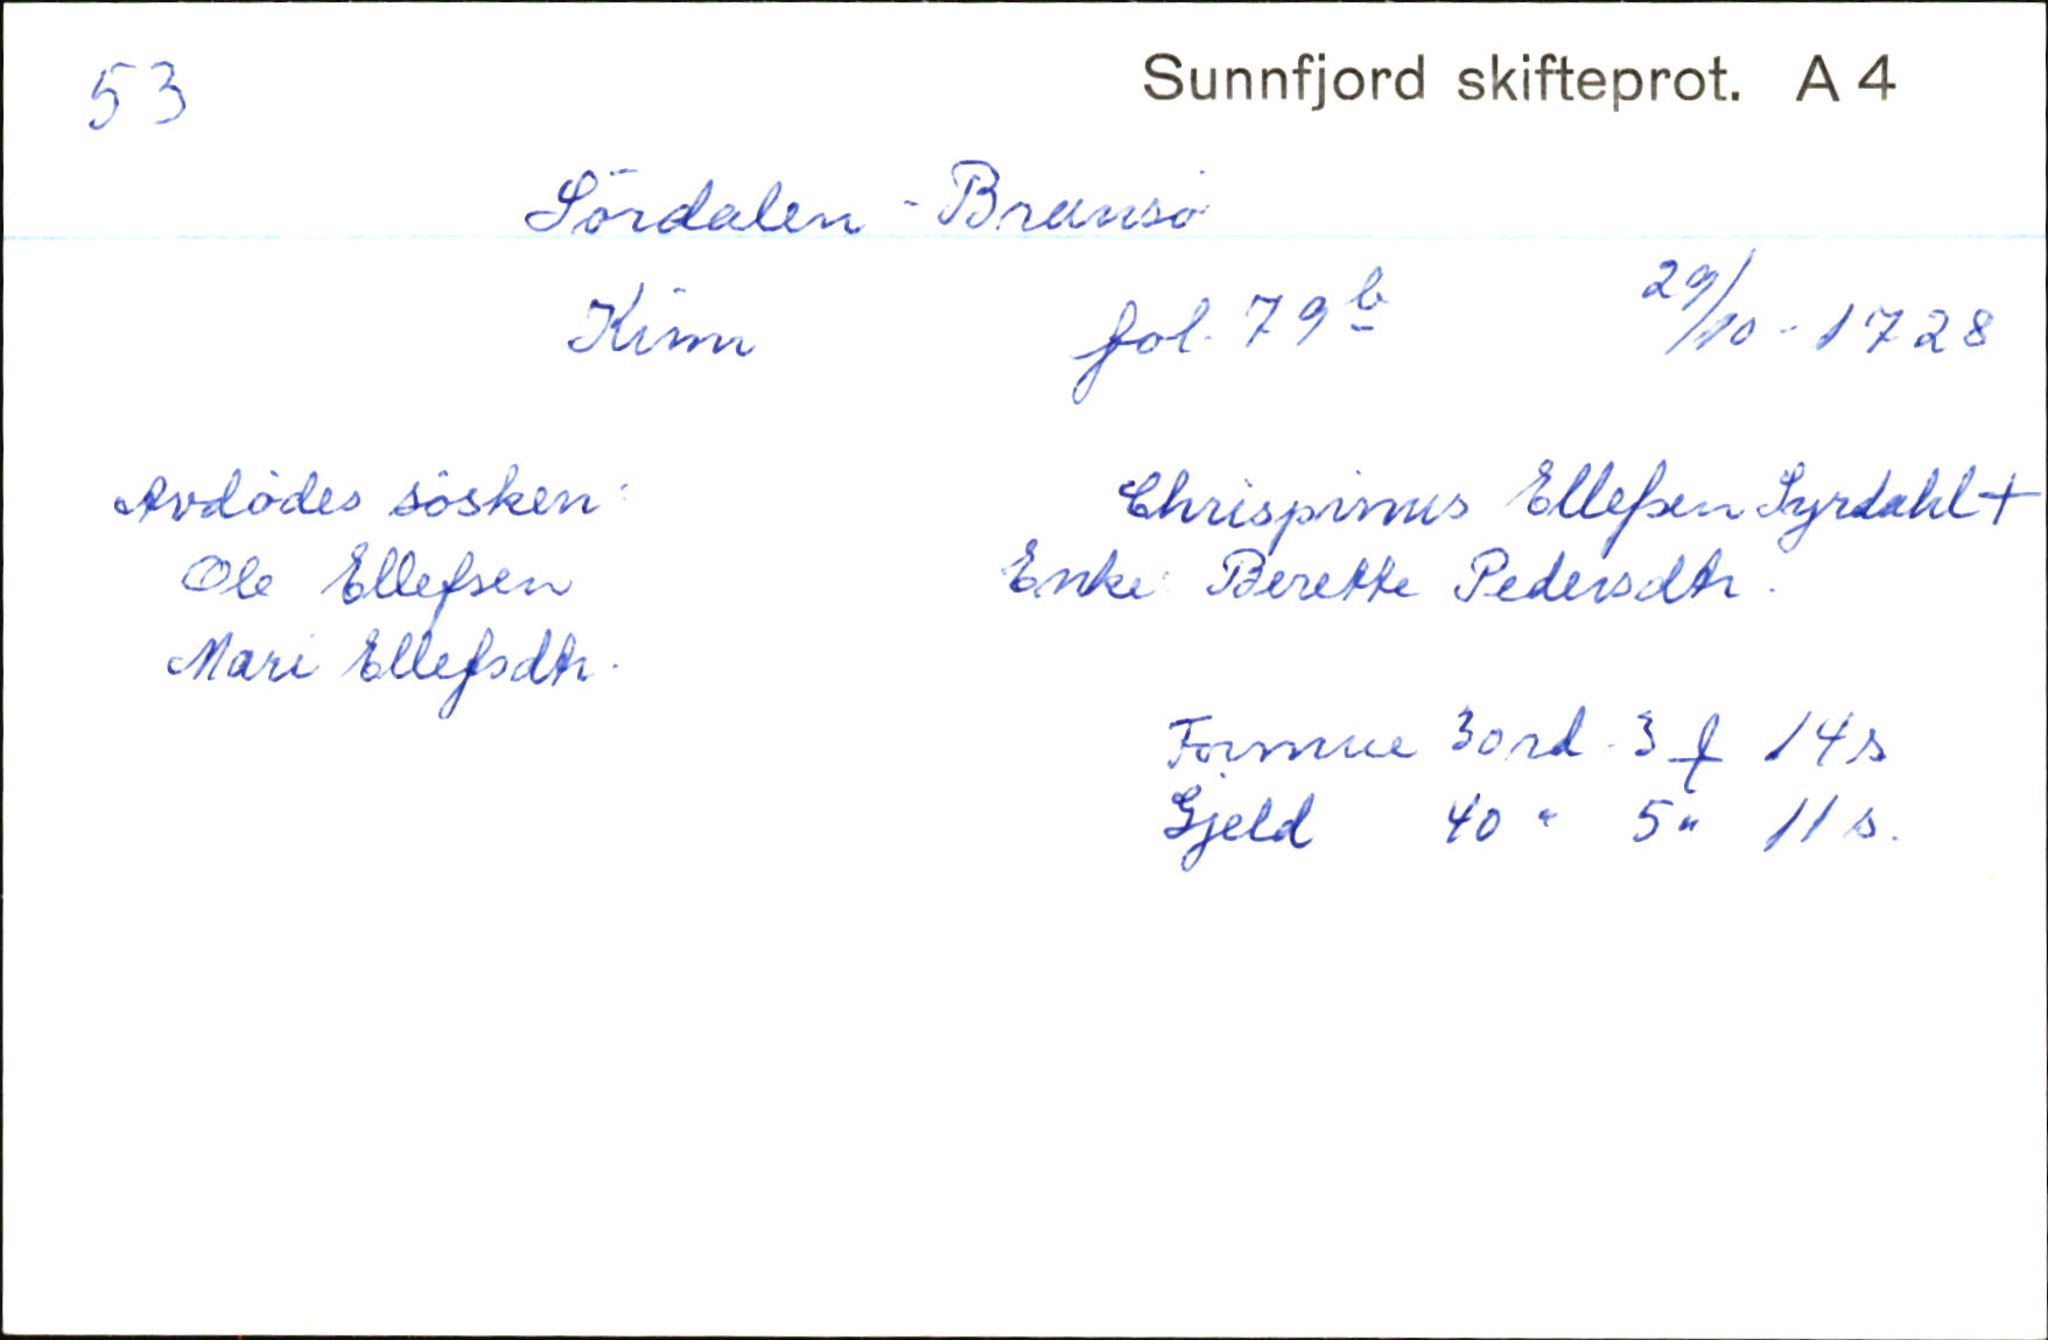 53
Sunnfjord skifteprot. A 4
Sördalen - Bransö
Kinn fol. 79 b 29/10 - 1728
Avdödes sösken: Chrispinus Ellefsen Syrdahl +
Ole Ellefsen Enke: Berette Pedersdtr.
Mari Ellefsdtr.
Formue 30 rd. 3 f 14 s
Gjeld 40 " 5 " 11 s.